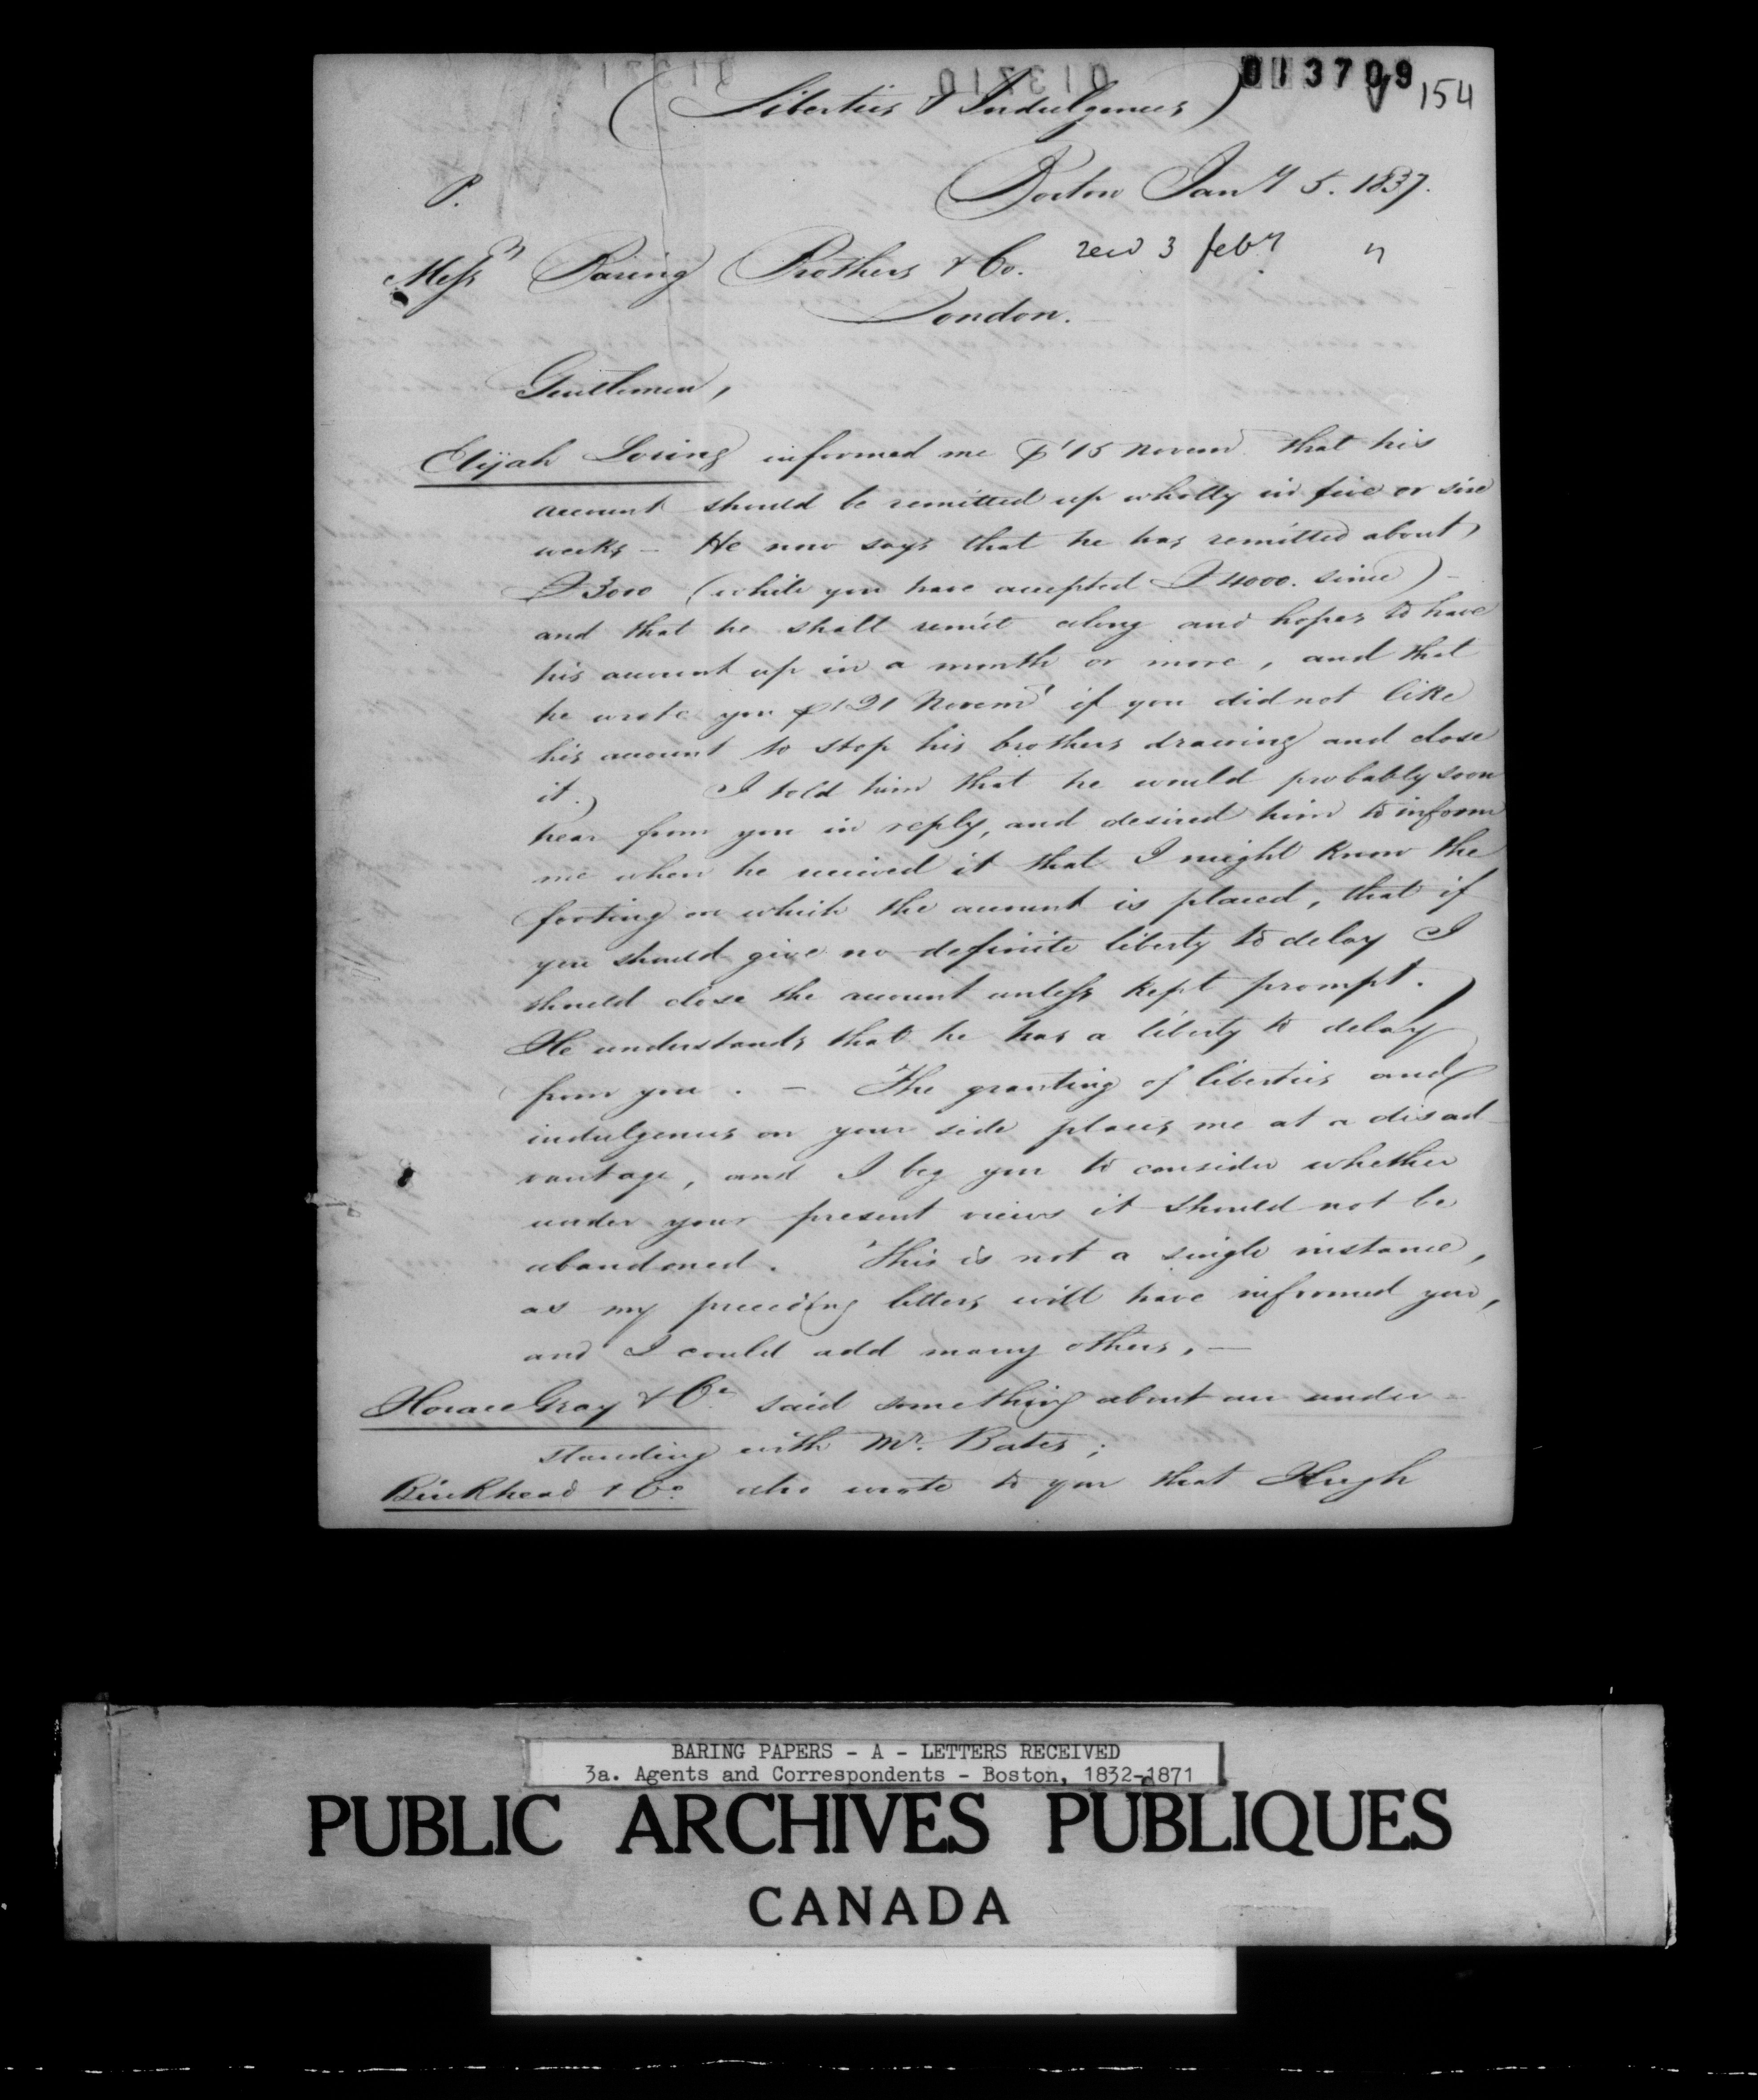 013709
154
(Liberties & Indulgences)
P.
Boston Jany 5. 1837.
Messrs Baring Brothers & Co. recd 3 feby "
London.
Gentlemen,
Elijah Loring informed me pr 15 Novem that his
account should be remitted up wholly in five or six
weeks – He now says that he has remitted about
£3000 (while you have accepted £4000. since) –
and that he shall remit along and hopes to have
his account up in a month or more, and that
he wrote you pr 21 Novemr if you did not like
his account to stop his brothers drawing and close
it. I told him that he would probably soon
hear from you in reply, and desired him to inform
me when he received it that I might know the
footing on which the account is placed, that if
you should give no definite liberty to delay I
should close the account unless kept prompt.
He understands that he has a liberty to delay
from you. – The granting of liberties and
indulgences on your side places me at a disad
vantage, and I beg you to consider whether
under your present views it should not be
abandoned. This is not a single instance,
as my preceding letters will have informed you,
and I could add many others. –
Horace Gray & Co. said something about an under
standing with Mr. Bates;
Birckhead & Co. also wrote to you that Hugh
BARING PAPERS - A - LETTERS RECEIVED
3a. Agents and Correspondents - Boston, 1832-1871
PUBLIC ARCHIVES PUBLIQUES
CANADA